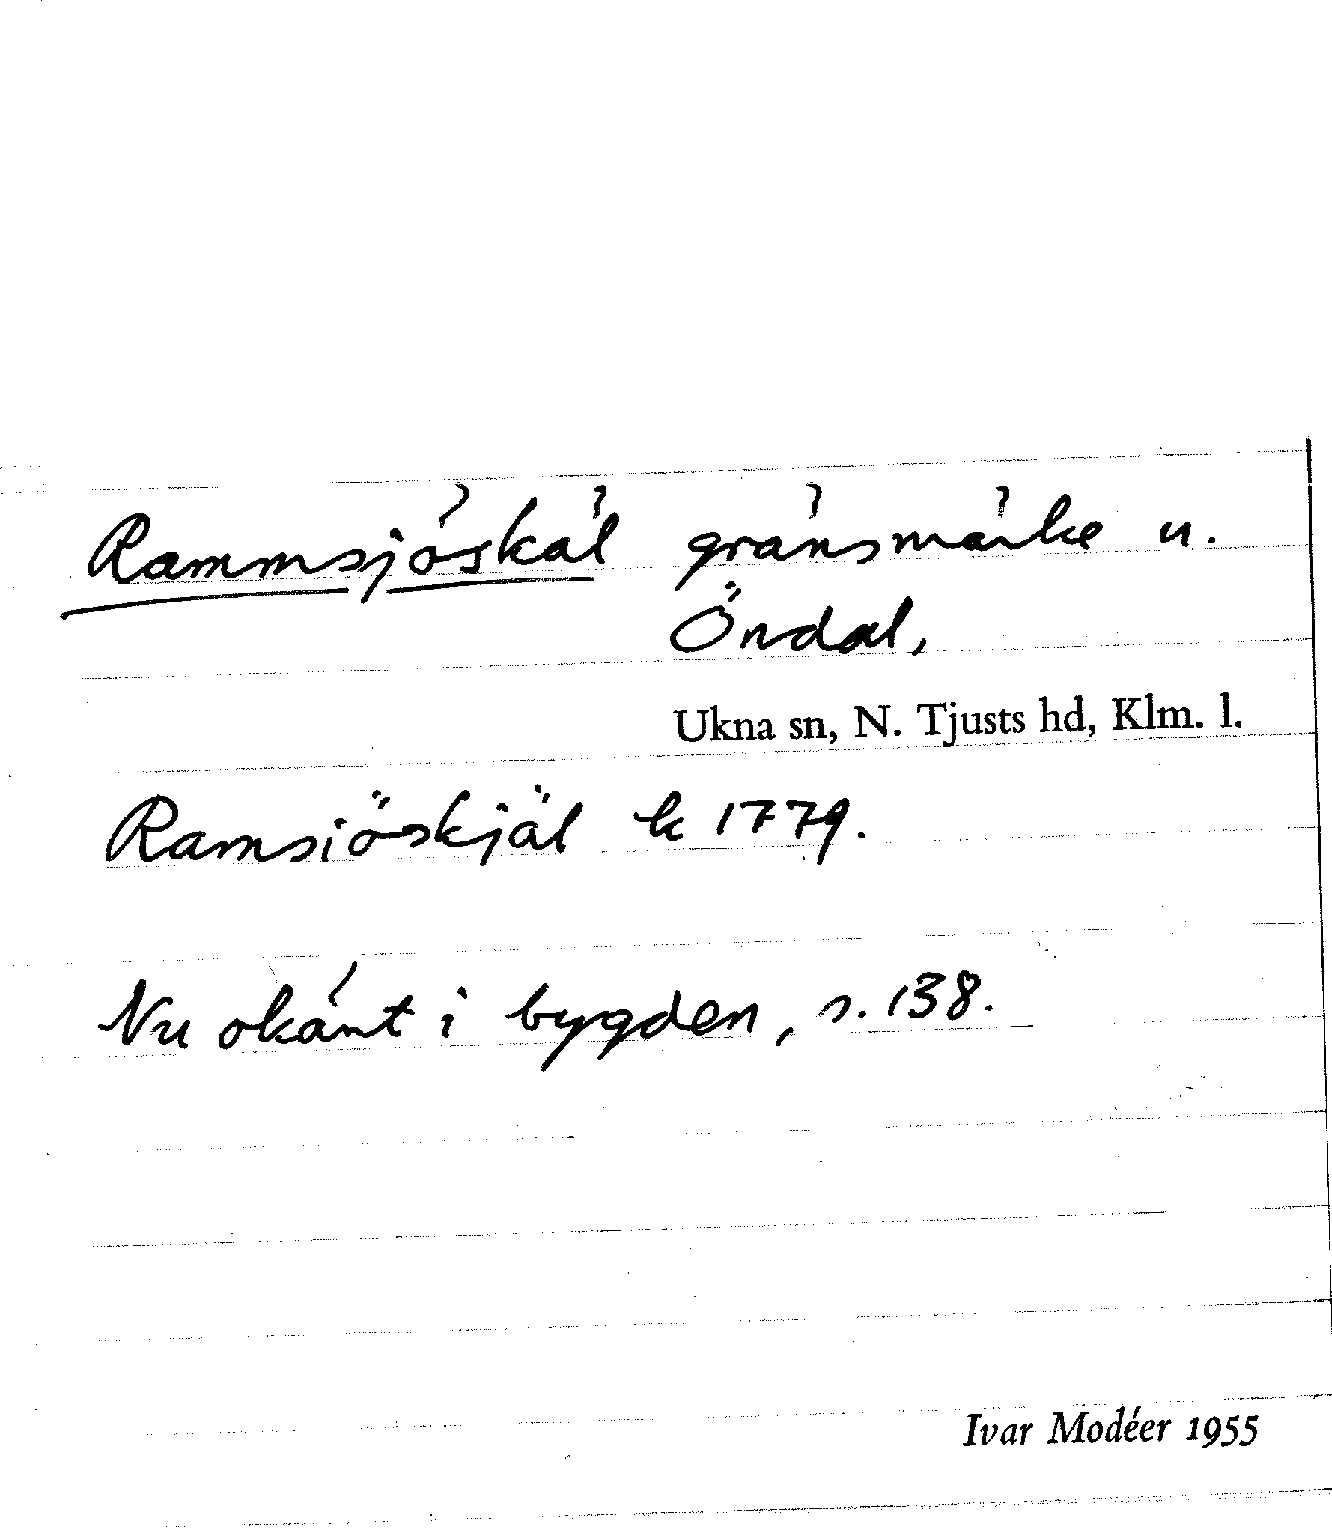 Rammsjöskäl gränsmärke u.
Öndal,
Ukna sn, N. Tjusts hd, Klm. l.
Ramsiöskjäl k 1779.
Nu okänt i bygden, s. 138.
Ivar Modéer 1955